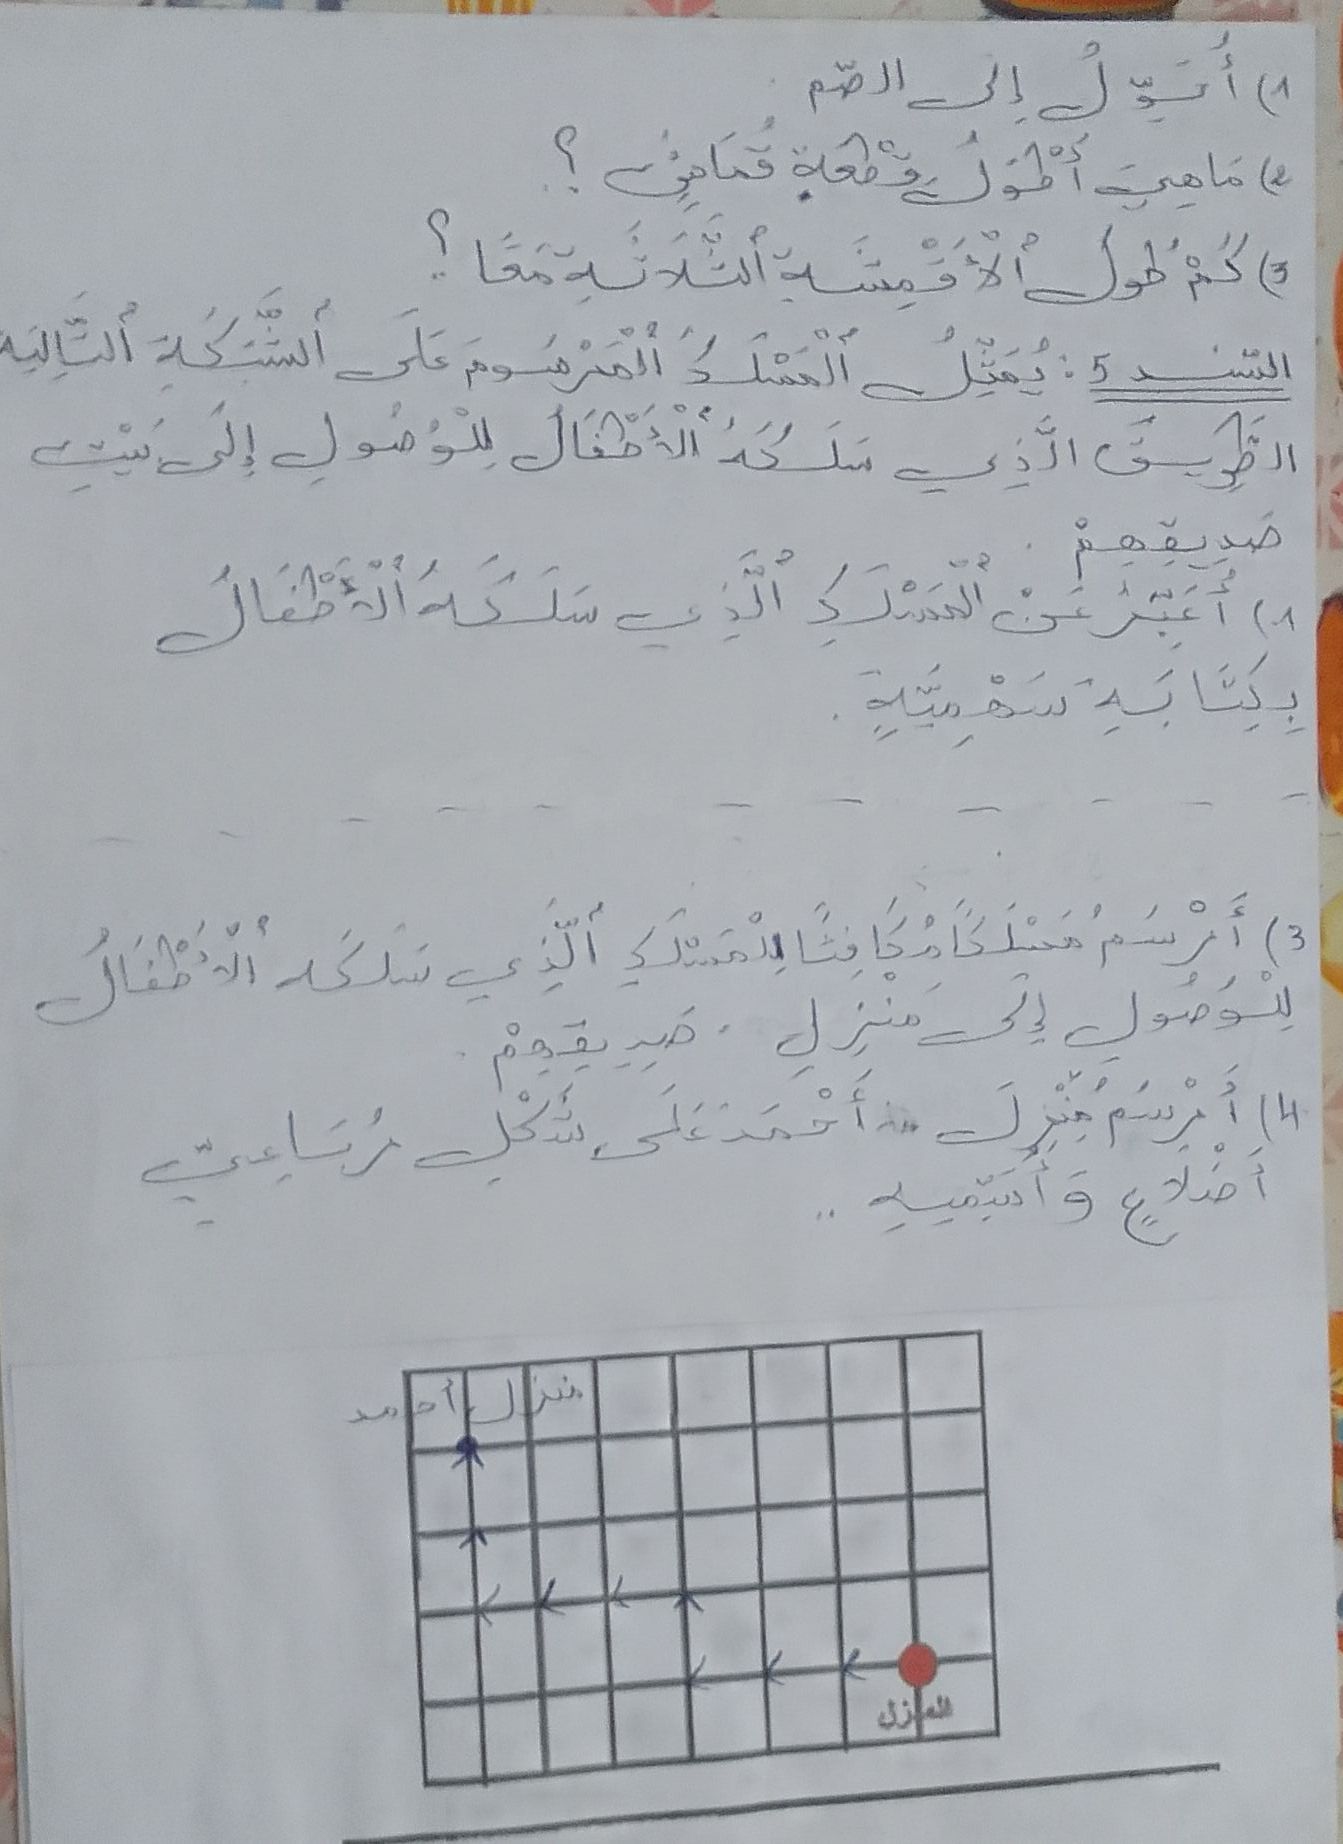 1) أُحَوِّلُ إِلَى الصّم
2) مَا هِيَ أَطْوَلُ قِطْعَةِ قُمَاشٍ ؟
3) كَمْ طُول الْأَقْمِشَةِ الثَّلَاثَةِ مَعًا ؟
السّند 5 : يُمَثِّلُ الْمَسْلَكُ الْمَرْسُومَ عَلَى الشَّبَكَةِ التَّالِيَة
الطَّرِيقَ الَّذِي سَلَكَهُ الْأَطْفَالُ لِلْوُصُولِ إِلَى بَيْتِ
صَدِيقِهِمْ .
1) أُعَبِّرُ عَنْ الْمَسْلَكِ الَّذِي سَلَكَهُ الْأَطْفَالُ
بِكِتَابَةِ سَهْمِيَّةٍ .
3) أَرْسُمُ مَسْلَكًا مُكَافِئًا لِلْمَسْلَكِ الَّذِي سَلَكَه الْأَطْفَالُ
لِلْوُصُولِ إِلَى مَنْزِلِ صَدِيقِهِمْ .
4) أَرْسُمُ مَنْزِلَ أَحْمَدَ عَلَى شَكْلِ رُبَاعِيّ
أَضْلَاعٍ وَأُسَمِّيهِ ..
منزل أحمد
المنزل